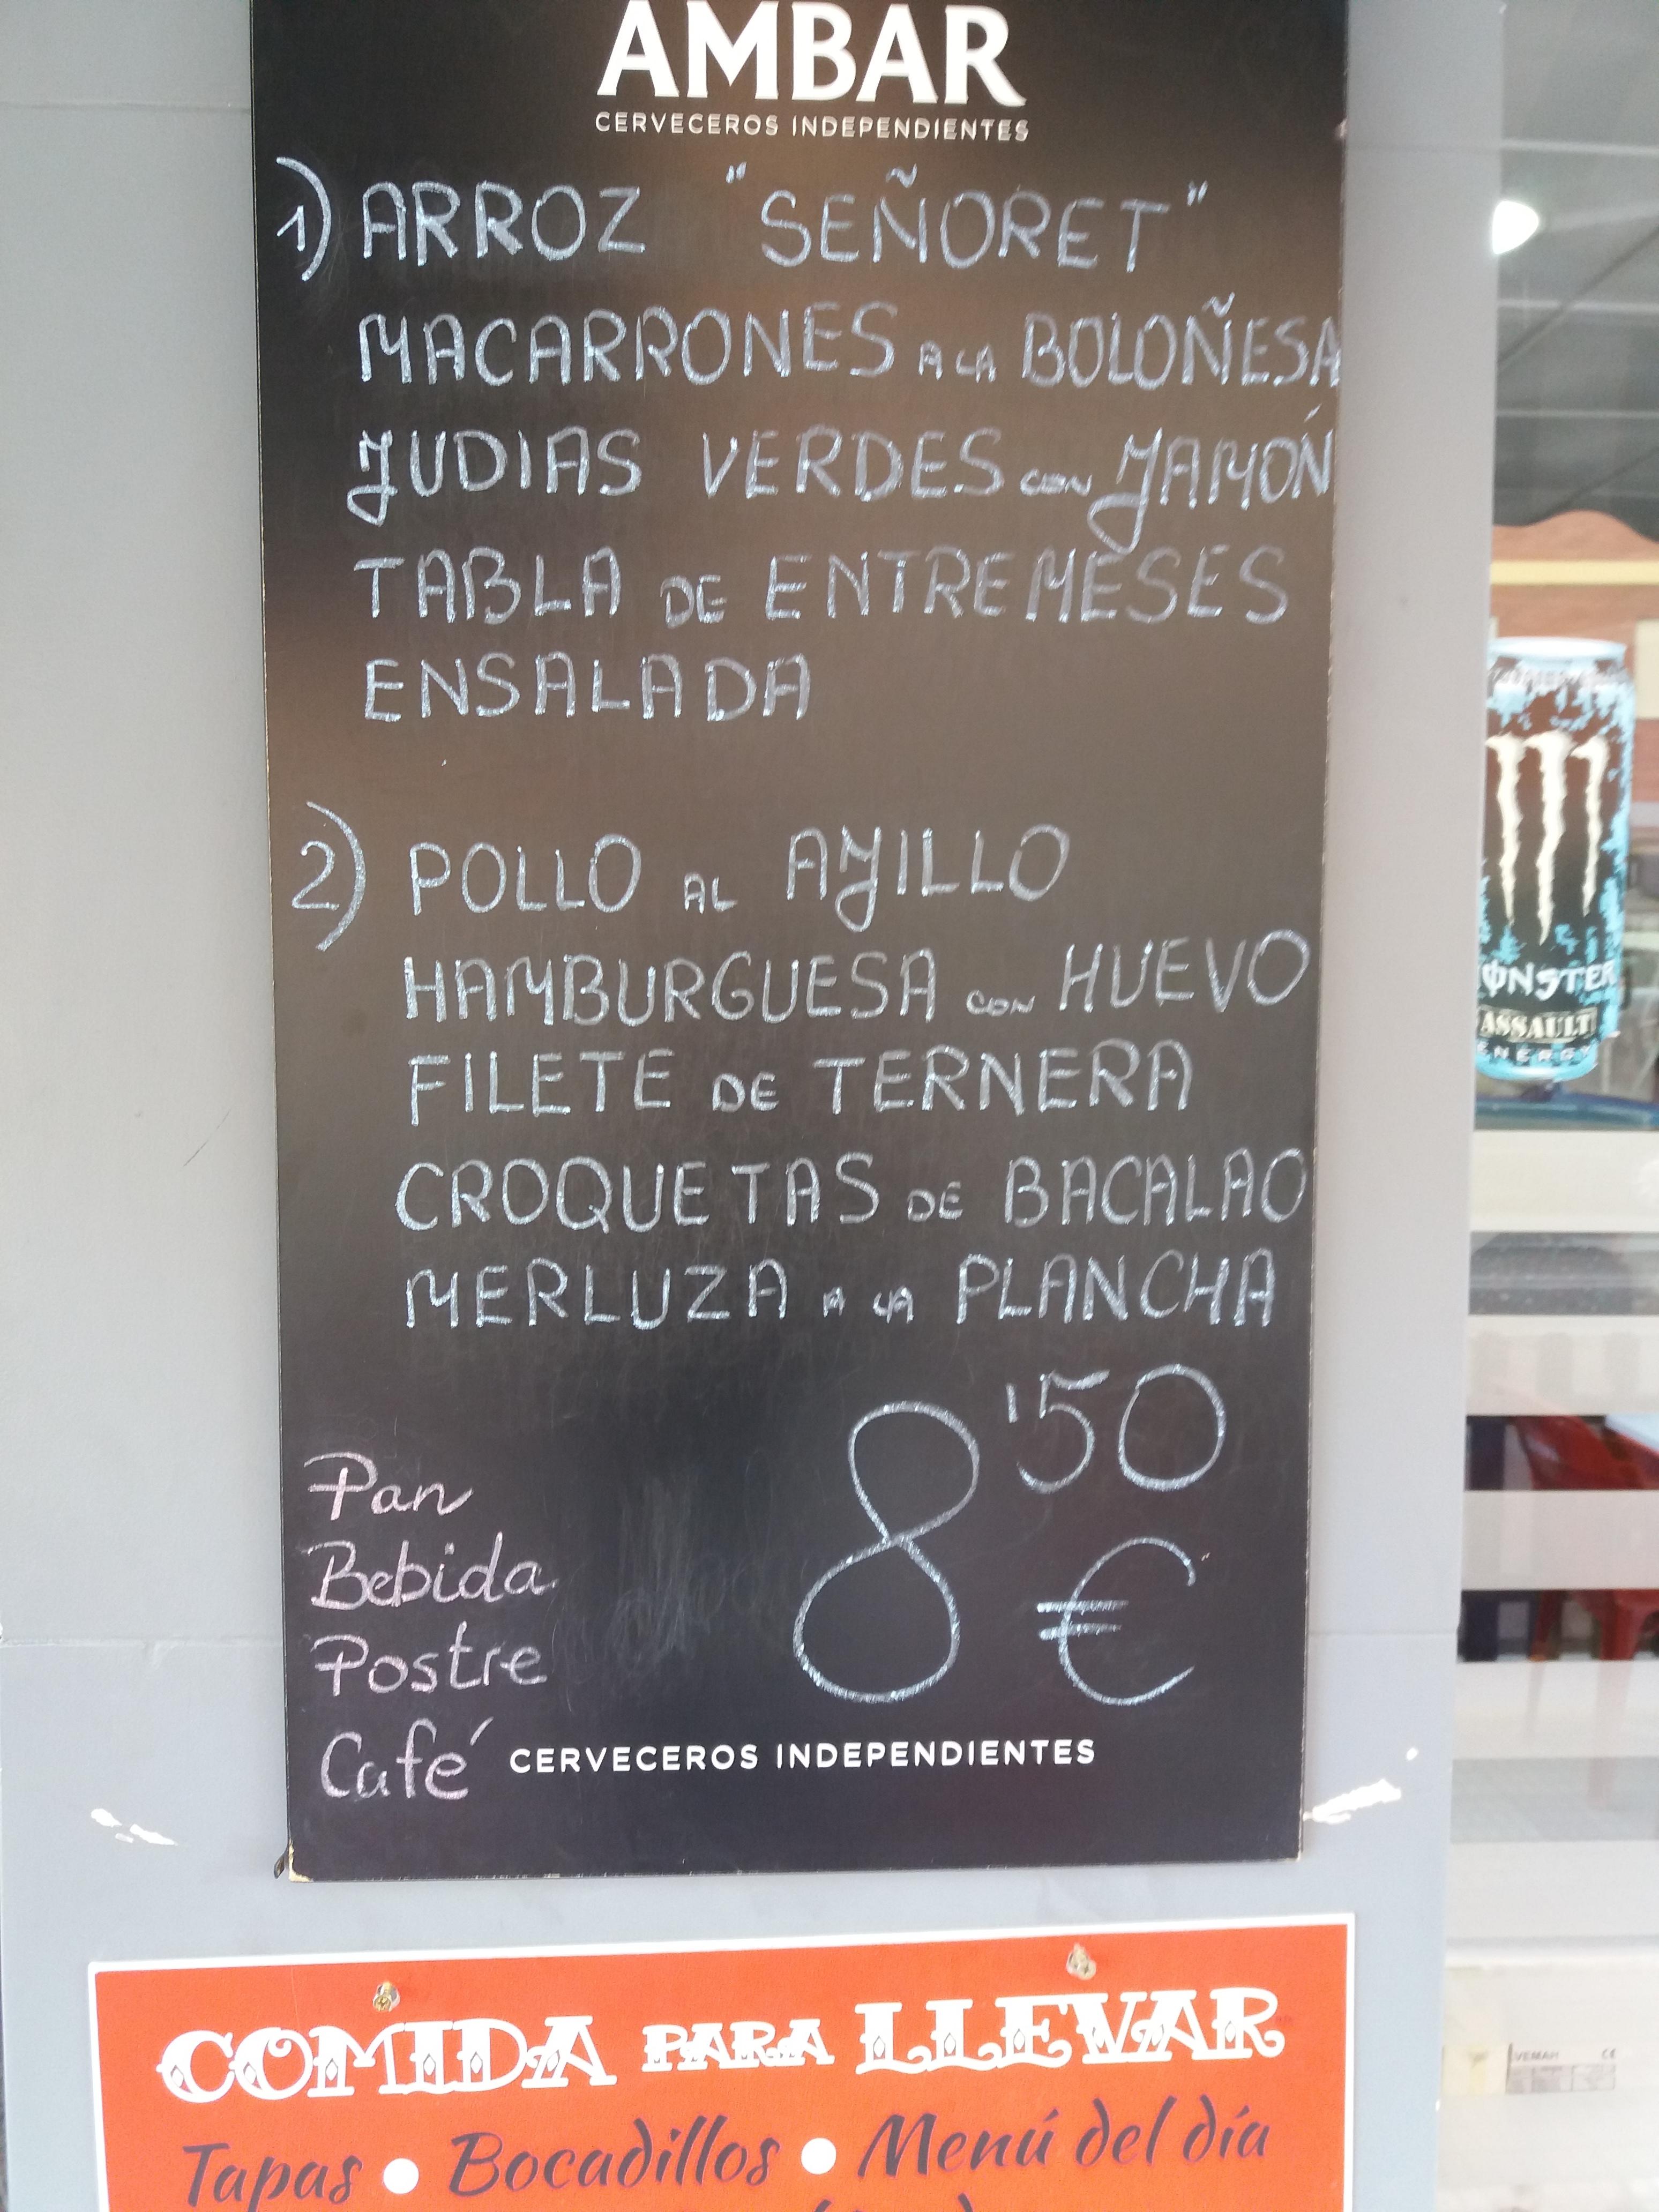 AMBAR
CERVECEROS INDEPENDIENTES
1) ARROZ "SEÑORET"
MACARRONES A LA BOLOÑESA
JUDIAS VERDES CON JAMÓN
TABLA DE ENTREMESES
ENSALADA
2) POLLO AL AJILLO
HAMBURGUESA CON HUEVO
FILETE DE TERNERA
CROQUETAS DE BACALAO
MERLUZA A LA PLANCHA
8'50 €
Pan
Bebida
Postre
Café
CERVECEROS INDEPENDIENTES
COMIDA PARA LLEVAR
Tapas • Bocadillos • Menú del día
MONSTER
ASSAULT
ENERGY